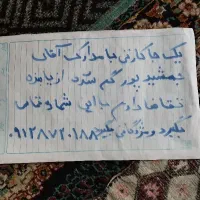 یک جا کارتی با مدارک آقای
جمشید پور گم شده از یابنده
تقاضا دارم با این شماره تماس
بگیرد و مژدگانی بگیرد ۰۹۱۲۸۷۲۰۱۸۸